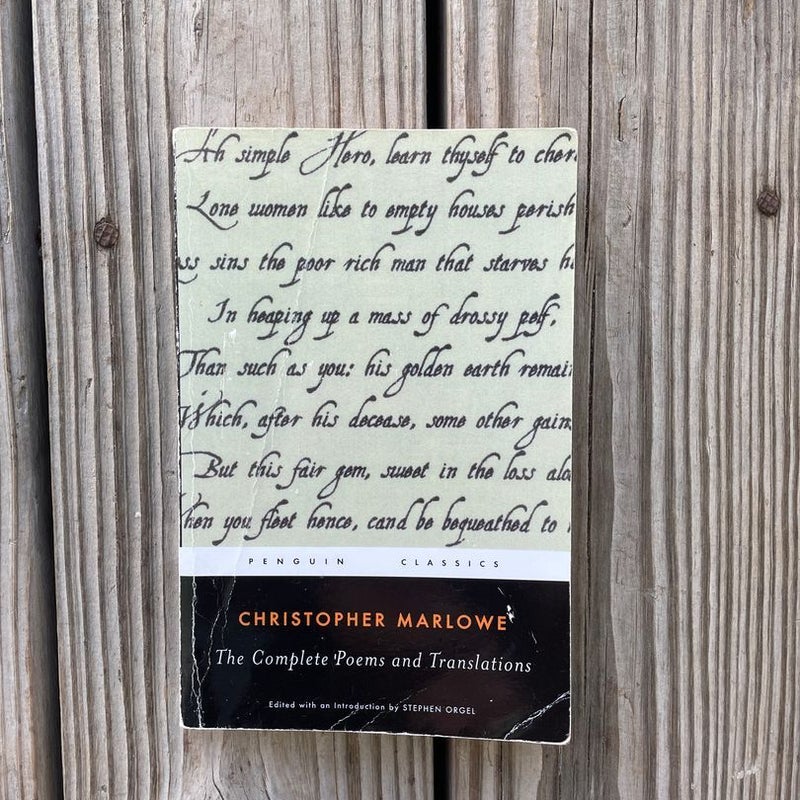 Ah simple Hero, learn thyself to cher
Lone women like to empty houses perish
ss sins the poor rich man that starves h
In heaping up a mass of drossy pelf,
Than such as you: his golden earth remai
Which, after his decease, some other gain
But this fair gem, sweet in the loss alo
hen you fleet hence, cand be bequeathed to
PENGUIN CLASSICS
CHRISTOPHER MARLOWE
The Complete Poems and Translations
Edited with an Introduction by STEPHEN ORGEL